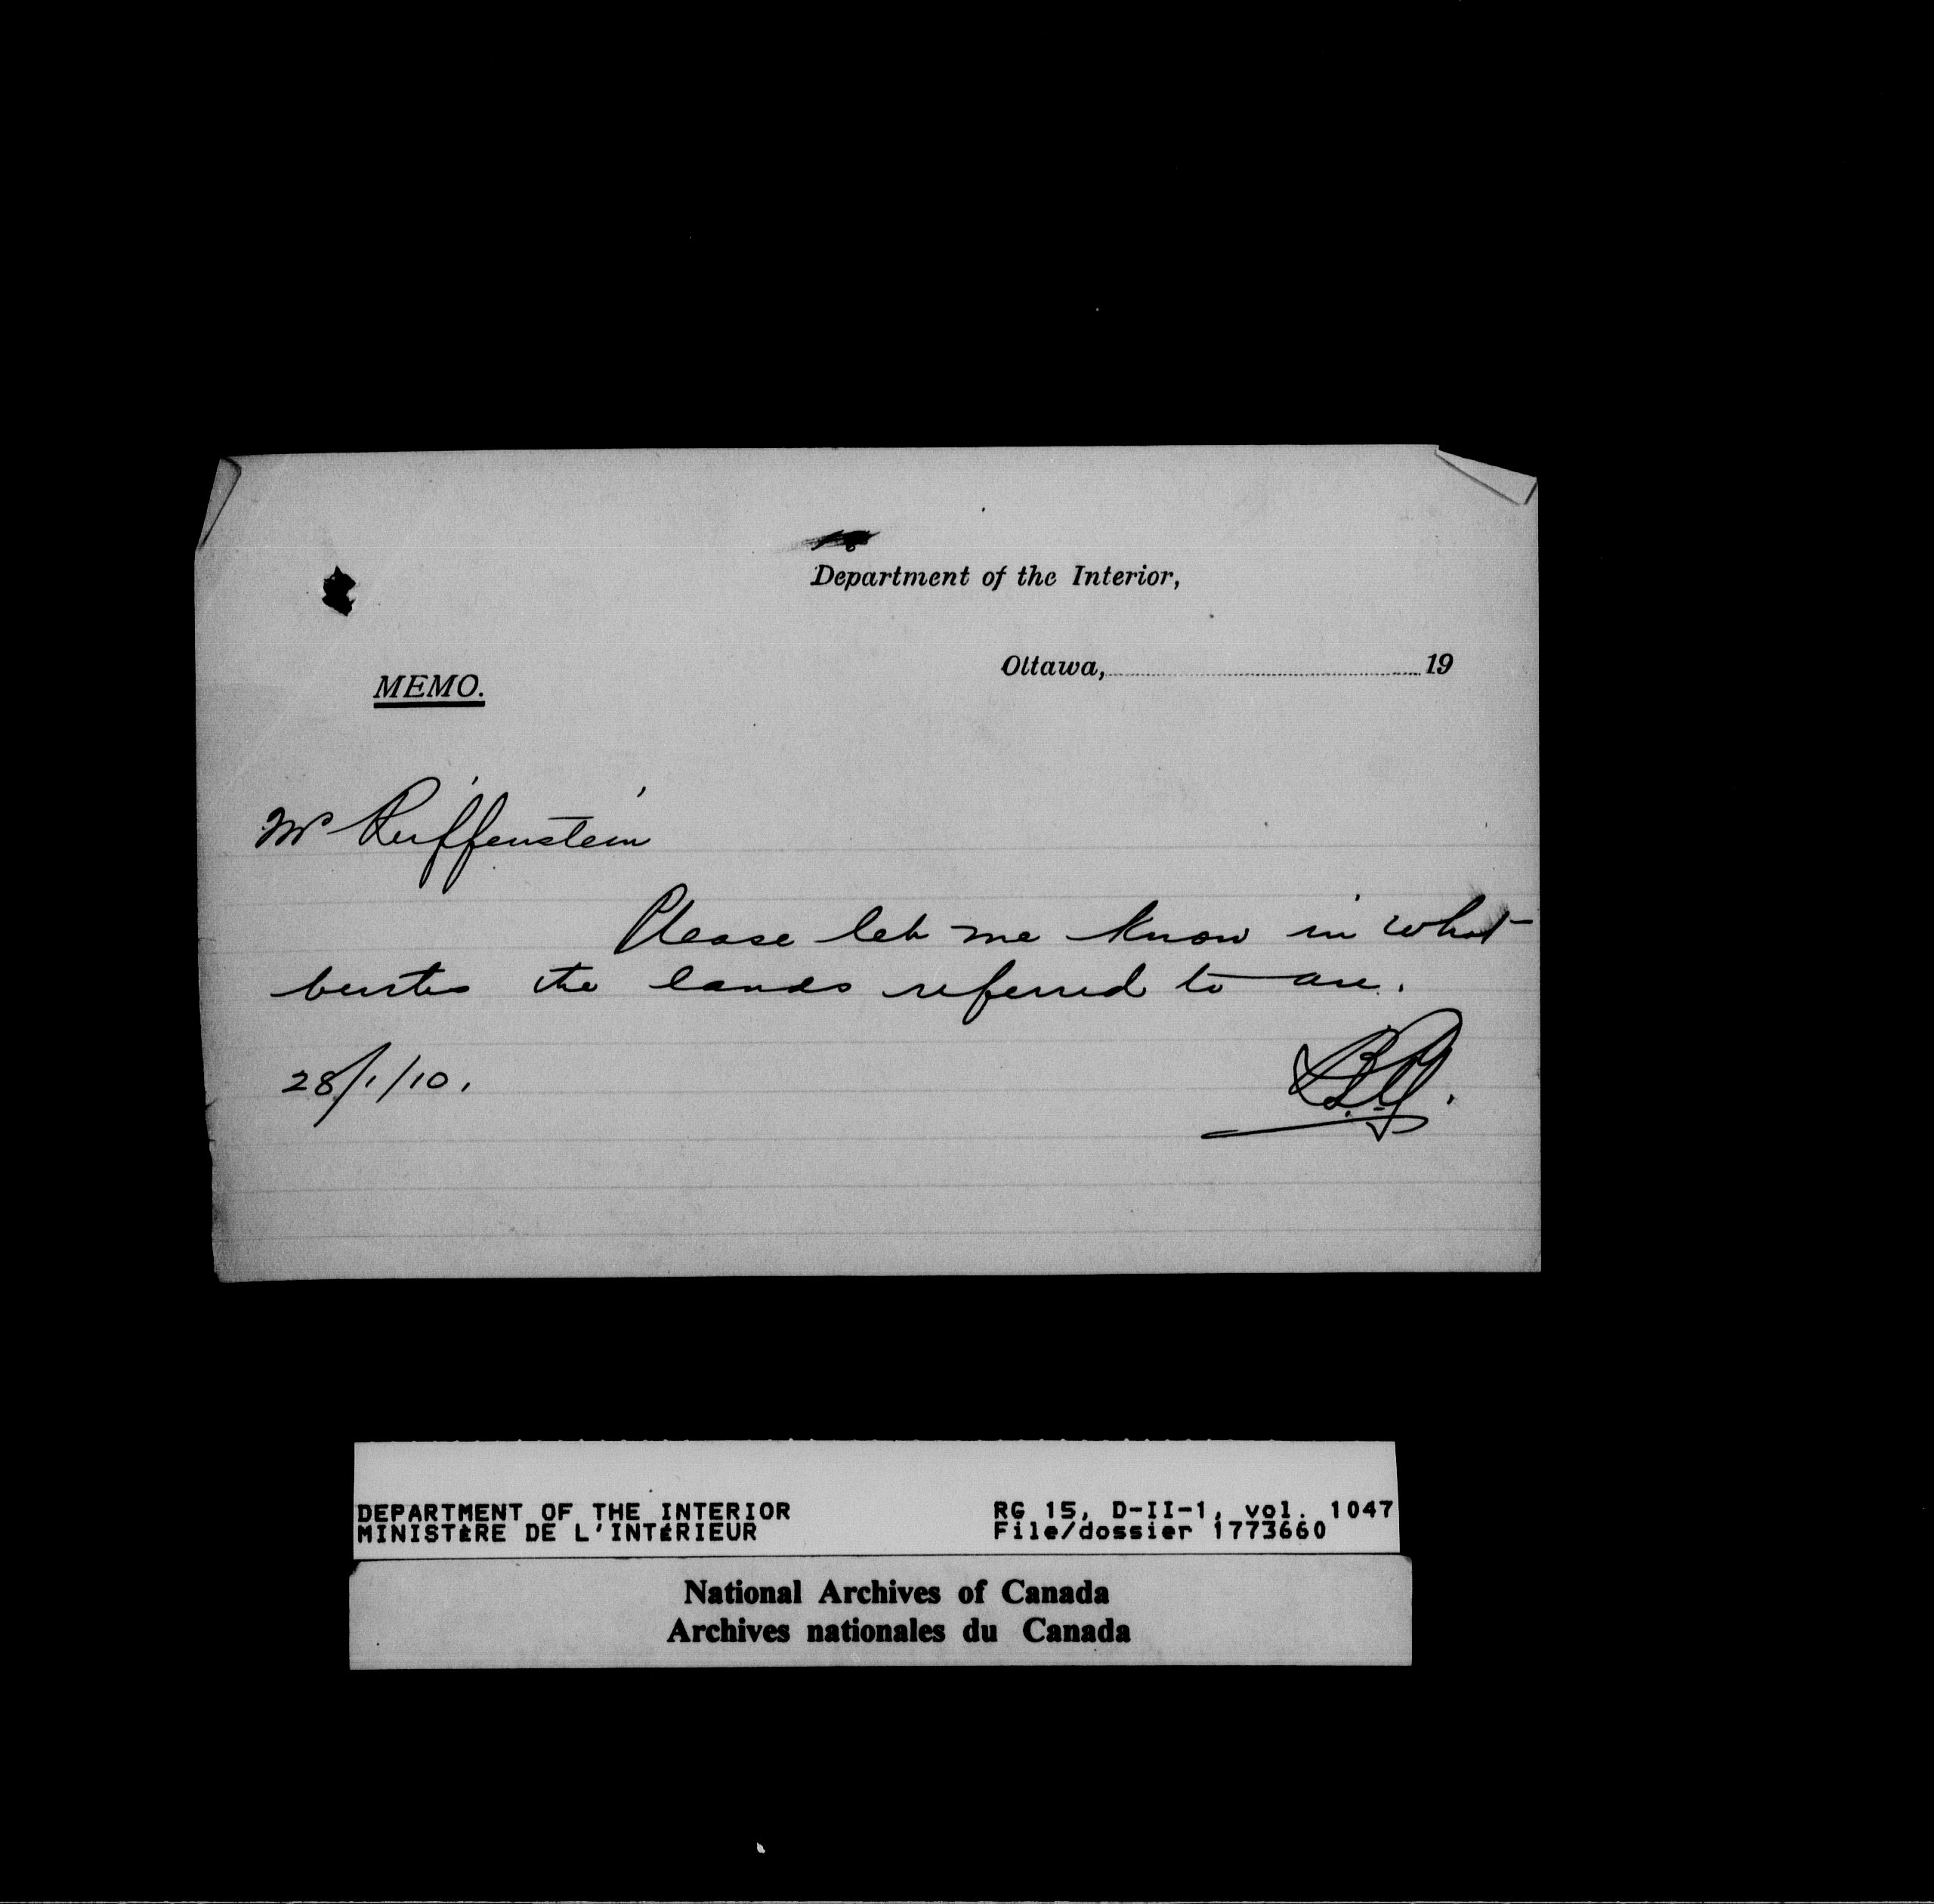 Department of the Interior,
Ottawa, 19
MEMO.
Mr Reiffenstein
Please let me know in what
belts the lands referred to are.
28/1/10.
DEPARTMENT OF THE INTERIOR
MINISTÈRE DE L'INTÉRIEUR
RG 15, D-II-1, vol. 1047
File/dossier 1773660
National Archives of Canada
Archives nationales du Canada